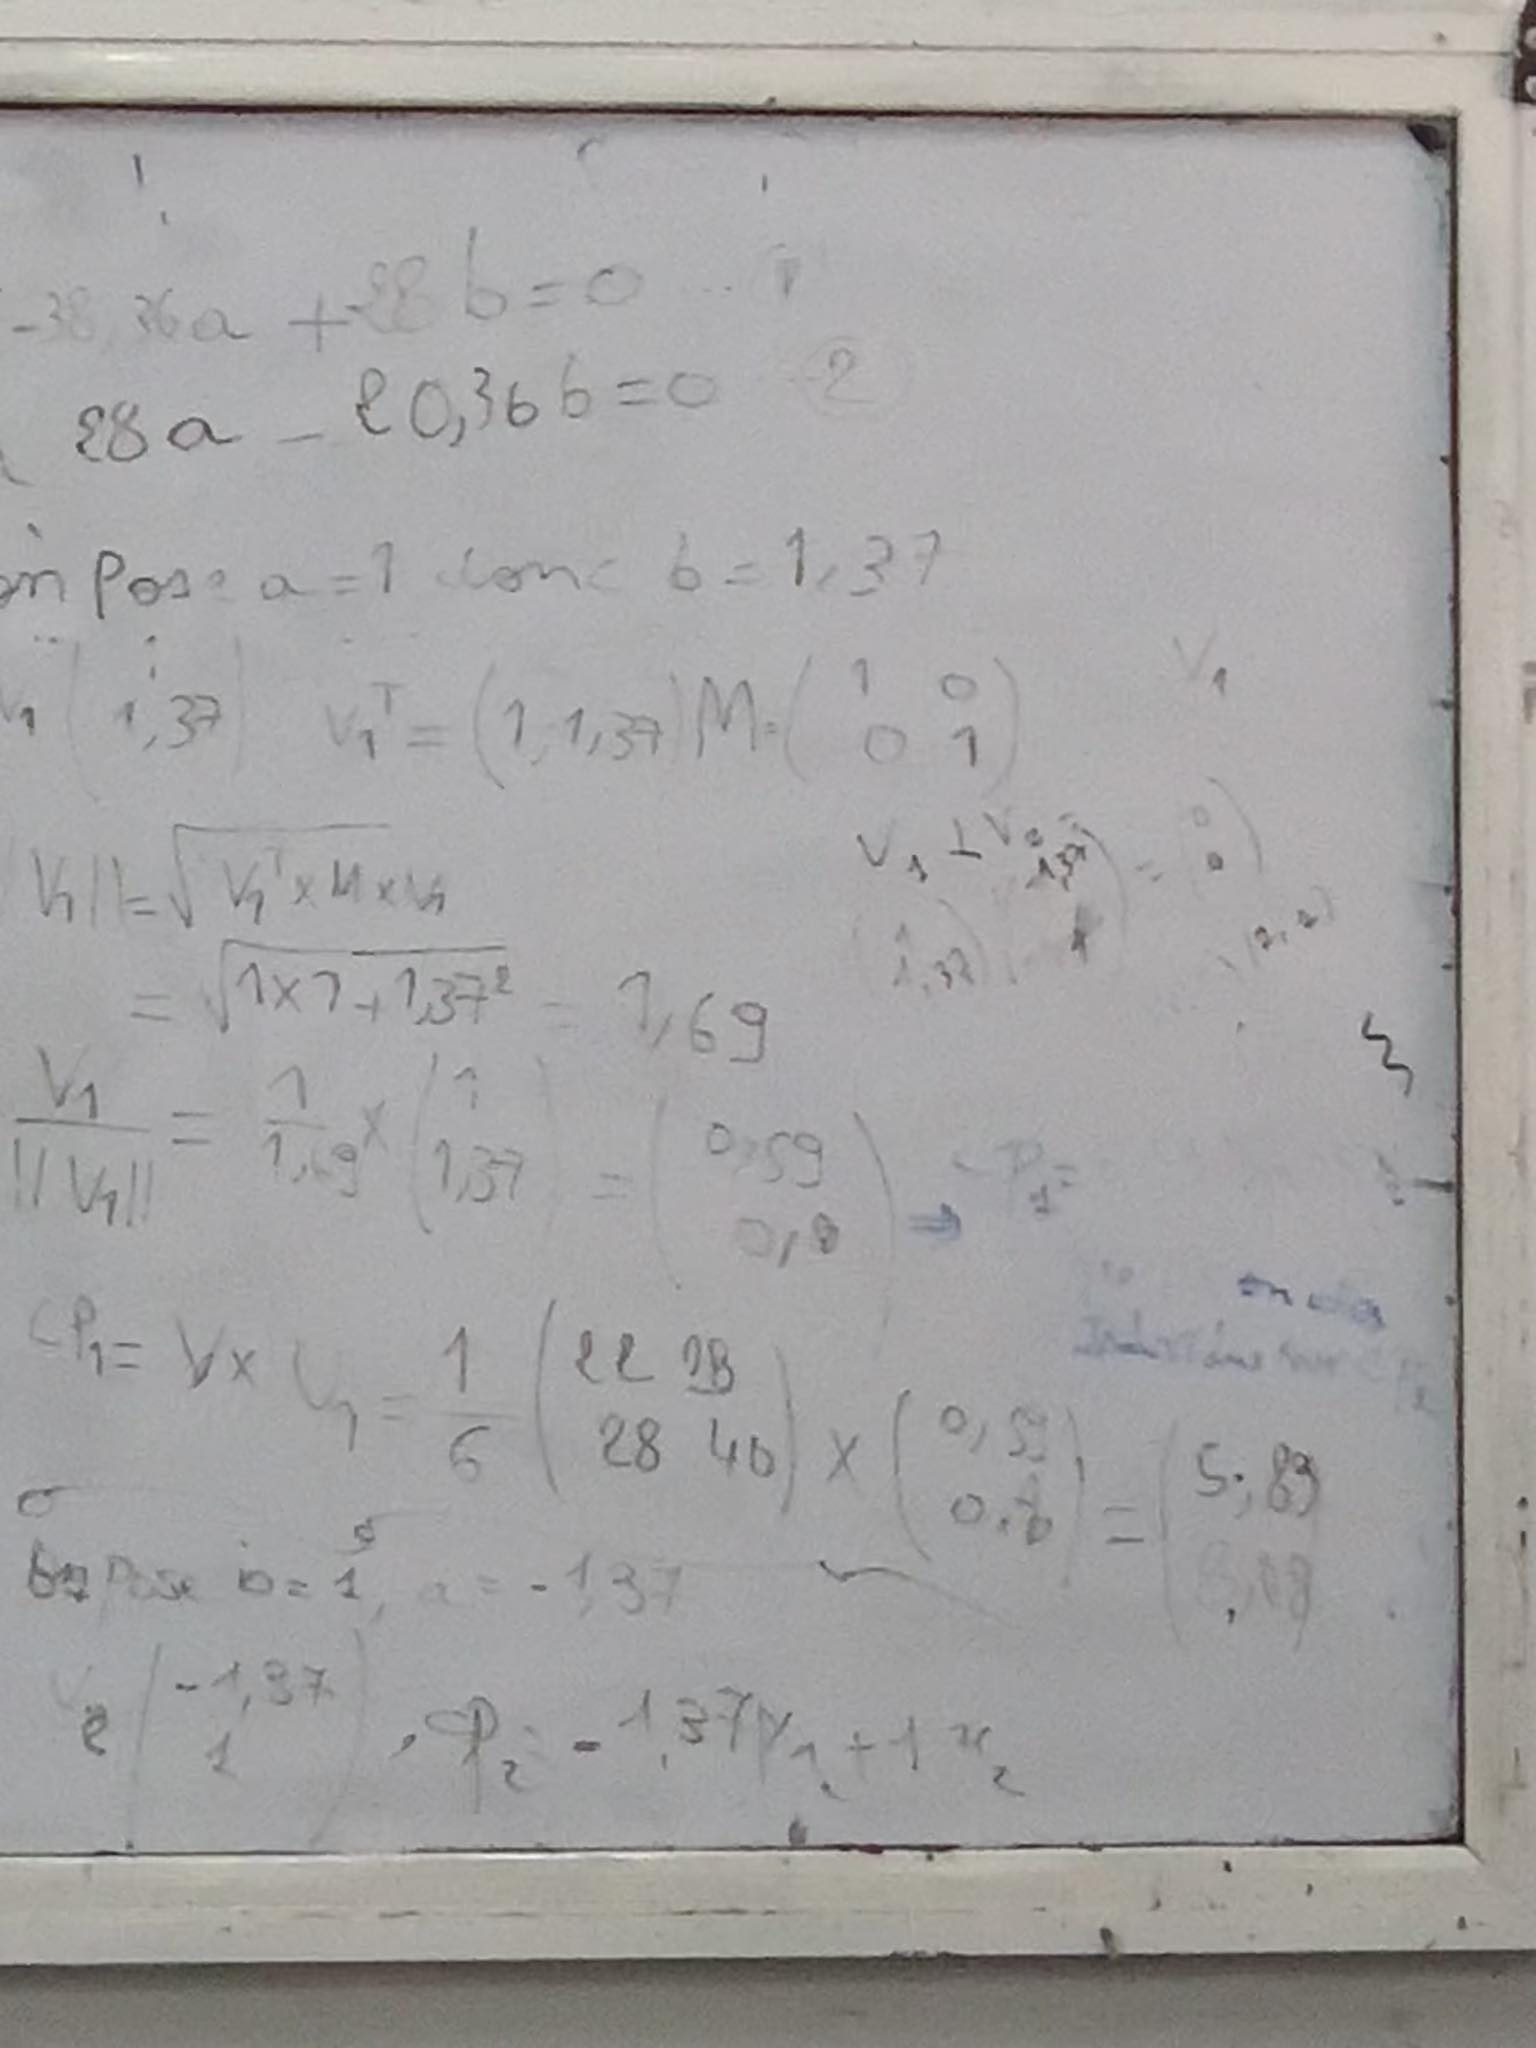 -38,36a + 28b = 0 ... 1
28a - 20,36b = 0 2
on pose a = 1 donc b = 1,37
V1 ( 1 1,37 ) V1^T = (1, 1,37) M = ( 1 0 0 1 ) V1
V1 ⊥ V2
( 1 1,37 ) ( -1,37 1 ) = ( 0 0 )
V1|| = √V1^T × M × V1
= √1×1 + 1,37² = 1,69
V1 / ||V1|| = 1 / 1,69 × ( 1 1,37 ) = ( 0,59 0,8 ) ⇒ CP1 =
CP1 = V × U1 = 1 / 6 ( 22 28 28 40 ) × ( 0,59 0,8 ) = ( 5,83
on pose b = 1, a = -1,37
V2 ( -1,37 1 ) , CP2 = -1,37 x1 + 1 x2